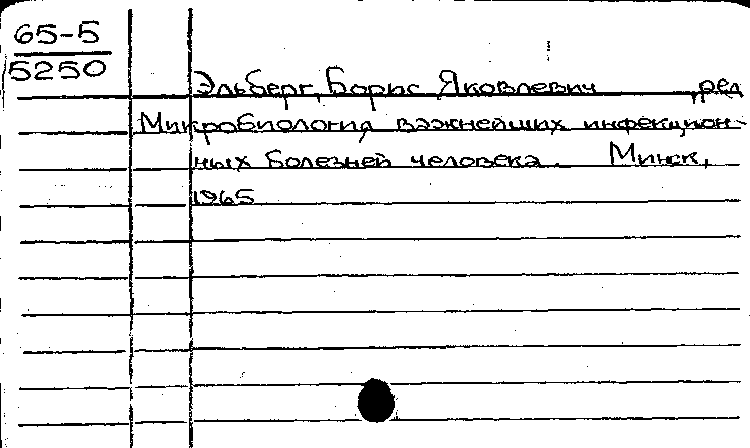 65-5
5250
Эльберг, Борис Яковлевич , ред
Микробиология важнейших инфекцион-
ных болезней человека. Минск,
1965